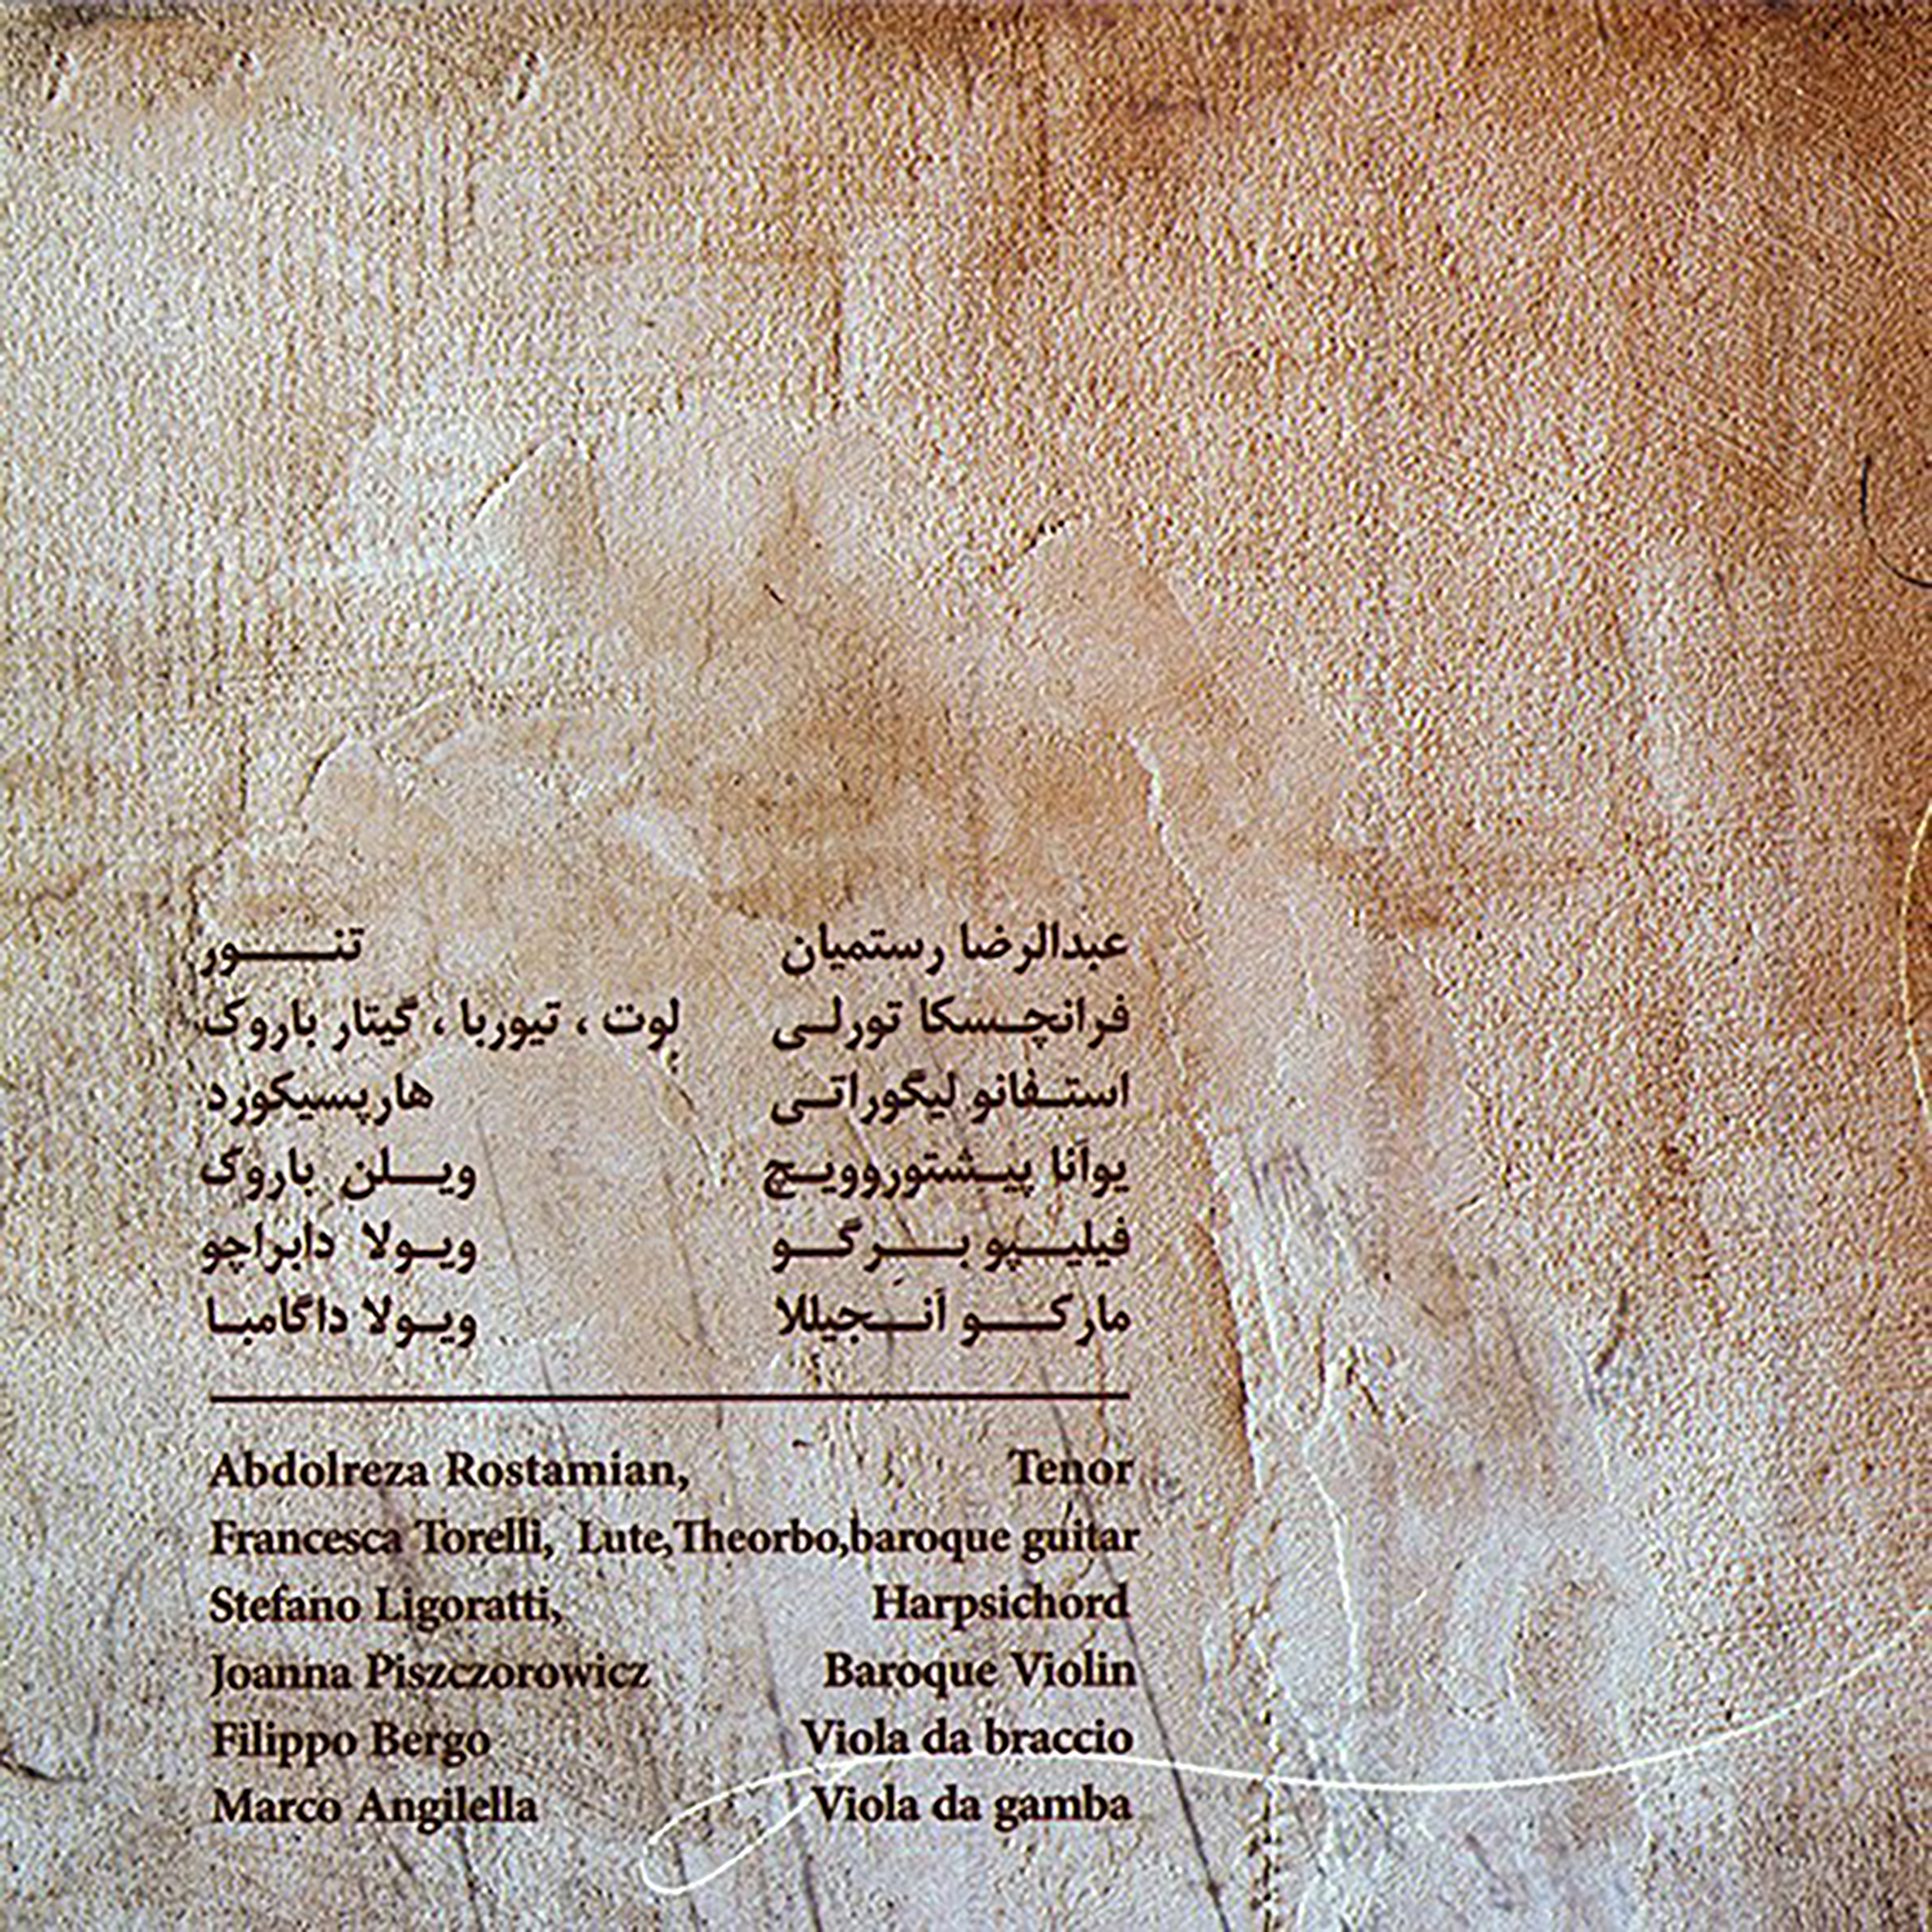 عبدالرضا رستمیان تنـــور
فرانچـسکا تورلـی لوت ، تیوربا ، گیتار باروک
استـفانو لیگوراتـی هارپسیکورد
یوآنا پیـشتوروویـچ ویـلن باروک
فیلیـپو بــرگـو ویـولا دابراچو
مارکــو آنـجیللا ویـولا داگامبـا
Abdolreza Rostamian, Tenor
Francesca Torelli, Lute,Theorbo,baroque guitar
Stefano Ligoratti, Harpsichord
Joanna Piszczorowicz Baroque Violin
Filippo Bergo Viola da braccio
Marco Angilella Viola da gamba